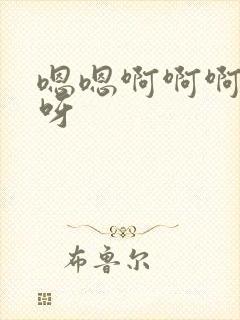 嗯嗯啊啊啊
呀
布鲁尔